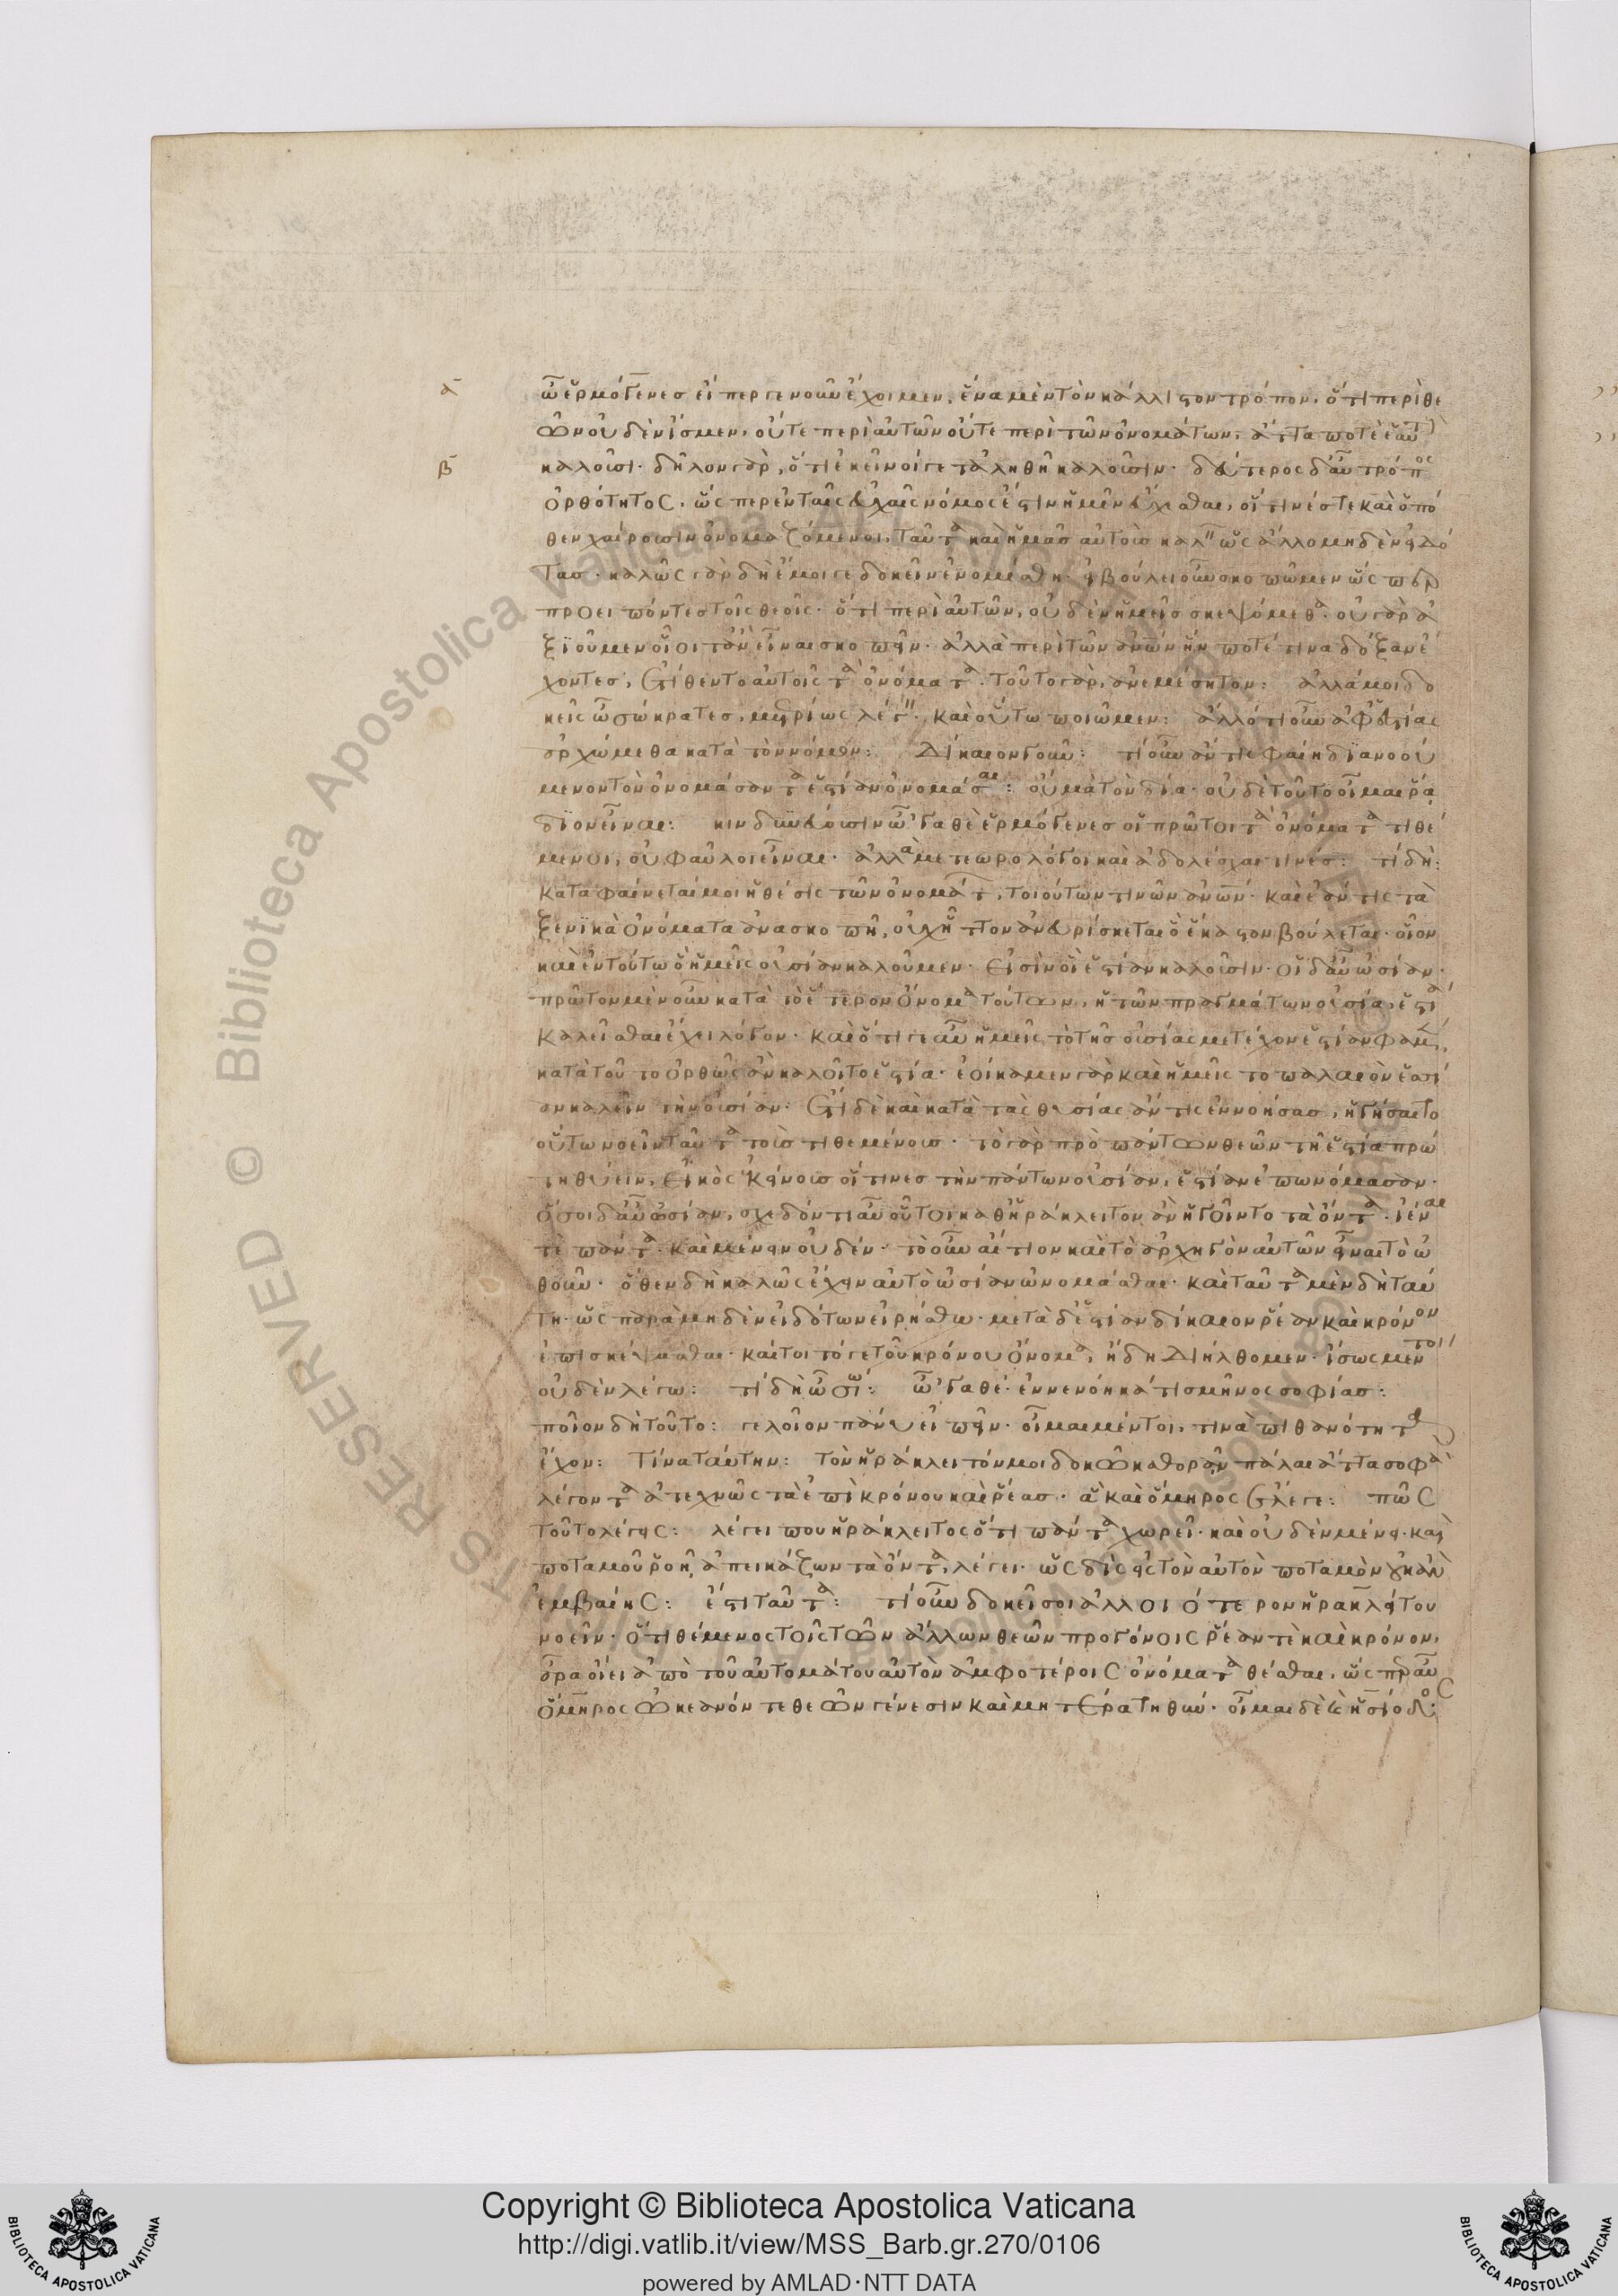 α
ὦ ἑρμόγενες εἴπερ γε νοῦν ἔχοιμεν, ἕνα μὲν τὸν κάλλιστον τρόπον, ὅτι περὶ θε
ῶν οὐδὲν ἴσμεν, οὔτε περὶ αὐτῶν οὔτε περὶ τῶν ὀνομάτων, ἅττα ποτὲ ἑαυτ
β
καλοῦσι· δῆλον γὰρ, ὅτι ἐκεῖνοί γε τἀληθῆ καλοῦσιν· δεύτερος δ' αὖ τρόπος
ὀρθότητος, ὥσπερ ἐν ταῖς εὐχαῖς νόμος ἐστὶν ἡμῖν εὔχεσθαι, οἵτινές τε καὶ ὁπό
θεν χαίρουσιν ὀνομαζόμενοι, ταῦτα καὶ ἡμᾶς αὐτοὺς καλ ὡς ἄλλο μηδὲν εἰδό
τας· καλῶς γὰρ δὴ ἔμοιγε δοκεῖ νενομίσθαι· εἰ βούλει οὖν σκοπῶμεν ὥσπερ
προειπόντες τοῖς θεοῖς· ὅτι περὶ αὐτῶν, οὐδὲν ἡμεῖς σκεψόμεθα· οὐ γὰρ ἀ
ξιοῦμεν οἷοί τ' ἂν εἶναι σκοπεῖν· ἀλλὰ περὶ τῶν ἀνῶν ἥν ποτέ τινα δόξαν ἔ
χοντες, ἐτίθεντο αὐτοῖς τὰ ὀνόματα· τοῦτο γὰρ, ἀνεμέσητον: ἀλλά μοι δο
κεῖς ὦ σώκρατες, μετρίως λέγ· καὶ οὕτω ποιῶμεν: ἄλλό τι οὖν ἀφ' ἑστίας
ἀρχώμεθα κατὰ τὸν νόμον: Δίκαιον γοῦν: τί οὖν ἄν τις φαίη διανοού
μενον τὸν ὀνομάσαντα ἑστίαν ὀνομάσαι: οὐ μὰ τὸν δία· οὐδὲ τοῦτο οἶμαι ῥά
διον εἶναι: κινδυνεύουσιν ὦ 'γαθὲ ἑρμόγενες οἱ πρῶτοι τὰ ὀνόματα τιθέ
μενοι, οὐ φαῦλοι εἶναι· ἀλλὰ μετεωρολόγοι καὶ ἀδολέσχαι τινές: τί δή:
καταφαίνεταί μοι ἡ θέσις τῶν ὀνομάτ, τοιούτων τινῶν ἀνῶν· καὶ ἐάν τις τὰ
ξενικὰ ὀνόματα ἀνασκοπῇ, οὐχ ἧττον ἀνευρίσκεται ὃ ἕκαστον βούλεται· οἷον
καὶ ἐν τούτω ὃ ἡμεῖς οὐσίαν καλοῦμεν· εἰσὶν οἳ ἑστίαν καλοῦσιν· οἳ δ' αὖ ὠσίαν·
πρῶτον μὲν οὖν κατὰ τὸ ἕτερον ὄνομα τούτων, ἡ τῶν πραγμάτων οὐσία, ἑστία
καλεῖσθαι ἔχει λόγον· καὶ ὅτι γε αὖ ἡμεῖς τὸ τῆς οὐσίας μετέχον ἑστίαν φαμ,
κατὰ τοῦτο ὀρθῶς ἂν καλοῖτο ἑστία· ἐοίκαμεν γὰρ καὶ ἡμεῖς τὸ παλαιὸν ἐσσί
αν καλεῖν τὴν οὐσίαν: ἔτι δὲ καὶ κατὰ τὰς θυσίας ἄν τις ἐννοήσας, ἡγήσαιτο
οὕτω νοεῖν ταῦτα τοὺς τιθεμένους· τὸ γὰρ πρὸ πάντων θεῶν τῇ ἑστία πρώ
τη θύειν, εἰκὸς ἐκείνους οἵτινες τὴν πάντων οὐσίαν, ἑστίαν ἐπωνόμασαν·
ὅσοι δ' αὖ ὠσίαν, σχεδόν τι αὖ οὗτοι καθ' ἡράκλειτον ἂν ἡγοῖντο τὰ ὄντα· ἰέναι
τὲ πάντα· καὶ μένειν οὐδέν· τὸ οὖν αἴτιον καὶ τὸ ἀρχηγὸν αὐτῶν εἶναι τὸ ὠ
θοῦν· ὅθεν δὴ καλῶς ἔχειν αὐτὸ ὠσίαν ὠνομάσθαι· καὶ ταῦτα μὲν δὴ ταύ
τη· ὡς παρὰ μηδὲν εἰδότων εἰρήσθω· μετὰ δ' ἑστίαν δίκαιον ῥέαν καὶ κρόνον
ἐπισκέψασθαι· καίτοι τό γε τοῦ κρόνου ὄνομα, ἤδη διήλθομεν· ἴσως μέντοι
οὐδὲν λέγω: τί δὴ ὦ σώ: ὦ 'γαθὲ· ἐννενόηκά τι σμῆνος σοφίας:
ποῖον δὴ τοῦτο: γελοῖον πάνυ εἰπεῖν· οἶμαι μέντοι, τινὰ πιθανότητα
ἔχον: Τίνα ταύτην: τὸν ἡράκλειτόν μοι δοκῶ καθορᾶν πάλαι ἄττα σοφὰ
λέγοντα ἀτεχνῶς τὰ ἐπὶ κρόνου καὶ ῥέας· ἃ καὶ ὅμηρος ἔλεγε: πῶς
τοῦτο λέγεις: λέγει που ἡράκλειτος ὅτι πάντα χωρεῖ· καὶ οὐδὲν μένει· καὶ
ποταμοῦ ῥοῇ ἀπεικάζων τὰ ὄντα, λέγει· ὡς δὶς εἰς τὸν αὐτὸν ποταμὸν οὐκ ἂν
ἐμβαίης: ἔστι ταῦτα: τί οὖν δοκεῖ σοι ἀλλοιότερον ἡρακλείτου
νοεῖν· ὁ τιθέμενος τοῖς τῶν ἄλλων θεῶν προγόνοις ῥέαν τὲ καὶ κρόνον,
ἆρα οἴει ἀπὸ τοῦ αὐτομάτου αὐτὸν ἀμφοτέροις ὀνόματα θέσθαι, ὥσπερ αὖ
ὅμηρος ὠκεανόν τε θεῶν γένεσιν καὶ μητέρα τηθύν· οἶμαι δὲ καὶ ἡσίοδος·
RESERVED © Biblioteca Apostolica Vaticana
Copyright © Biblioteca Apostolica Vaticana
http://digi.vatlib.it/view/MSS_Barb.gr.270/0106
powered by AMLAD·NTT DATA
BIBLIOTECA APOSTOLICA VATICANA
BIBLIOTECA APOSTOLICA VATICANA